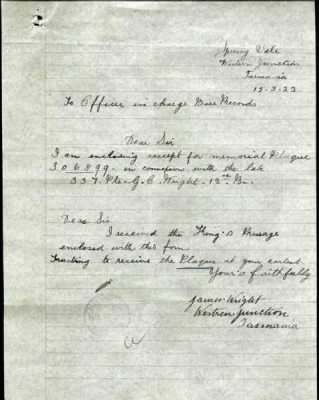 Spring Vale
Western Junction
Tasmania
15-3-22
To Officer in charge Base Records
Dear Sir
I am enclosing receipt for memorial Plaque
306899 - in connexion with the late
337. Pte. G. C. Wright - 12th Bn.
Dear Sir
I received the King's Message
enclosed with this form
Trusting to receive the Plaque at your earliest
Your's Faithfully
James Wright
Western Junction
Tasmania